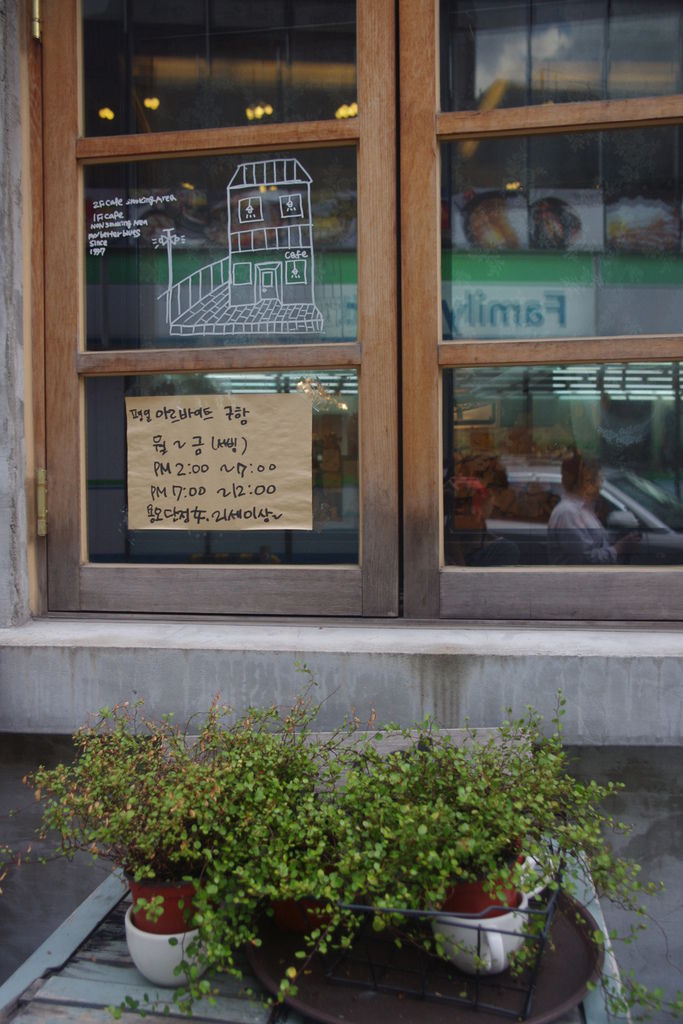 2F: cafe smoking AREA
1F: cafe
NON smoking AREA
mo' better blues
Since
1997
cafe
평일 아르바이트 구함
월 ~ 금 (서빙)
PM 2:00 ~ 7:00
PM 7:00 ~ 12:00
용모단정, 女. 21세이상~
Family